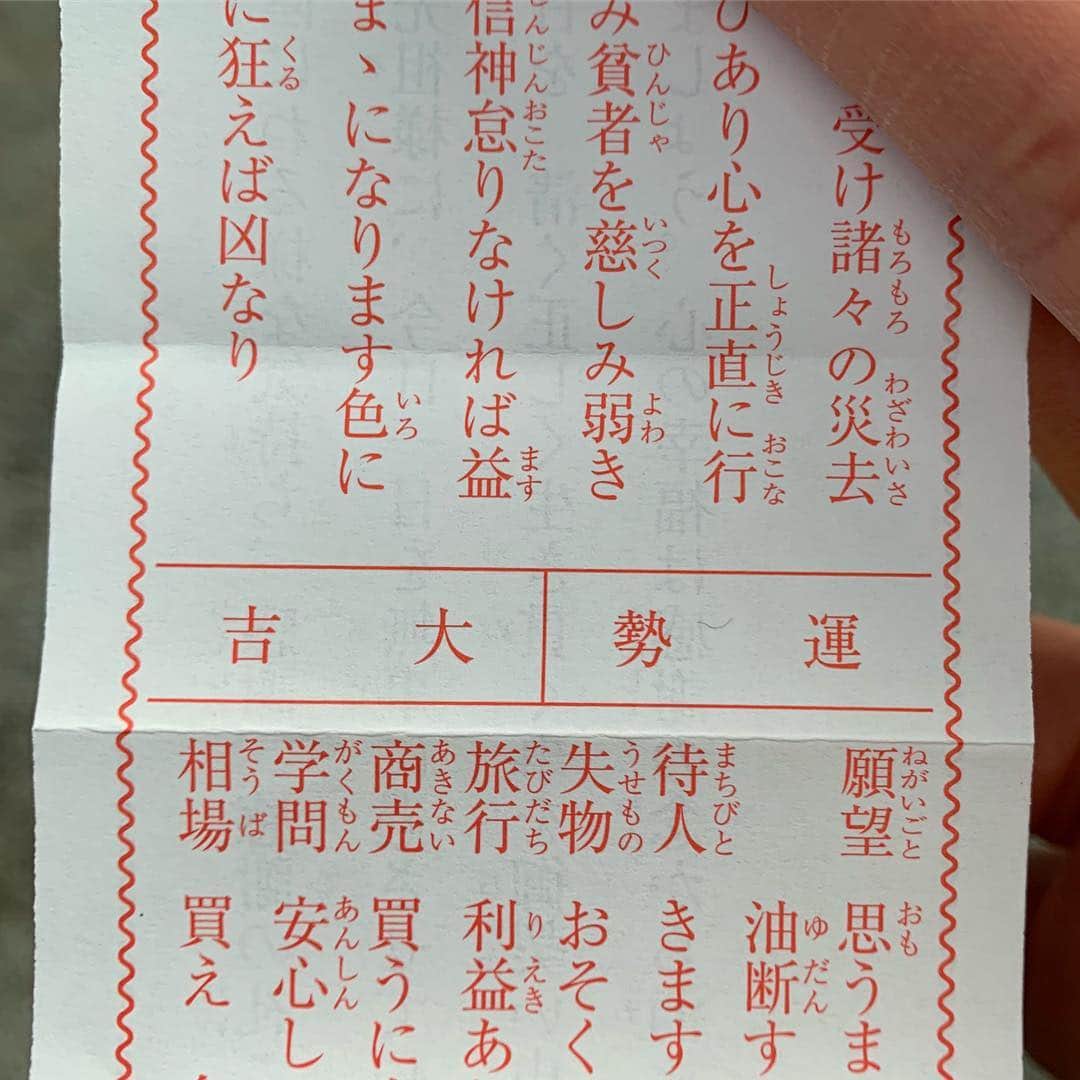 受け諸々の災去
ひあり心を正直に行
み貧者を慈しみ弱き
信神怠りなければ益
まゝになります色に
に狂えば凶なり
運勢
大吉
願望 思うま
油断す
待人 きます
失物 おそく
旅行 利益あ
商売 買うに
学問 安心し
相場 買え